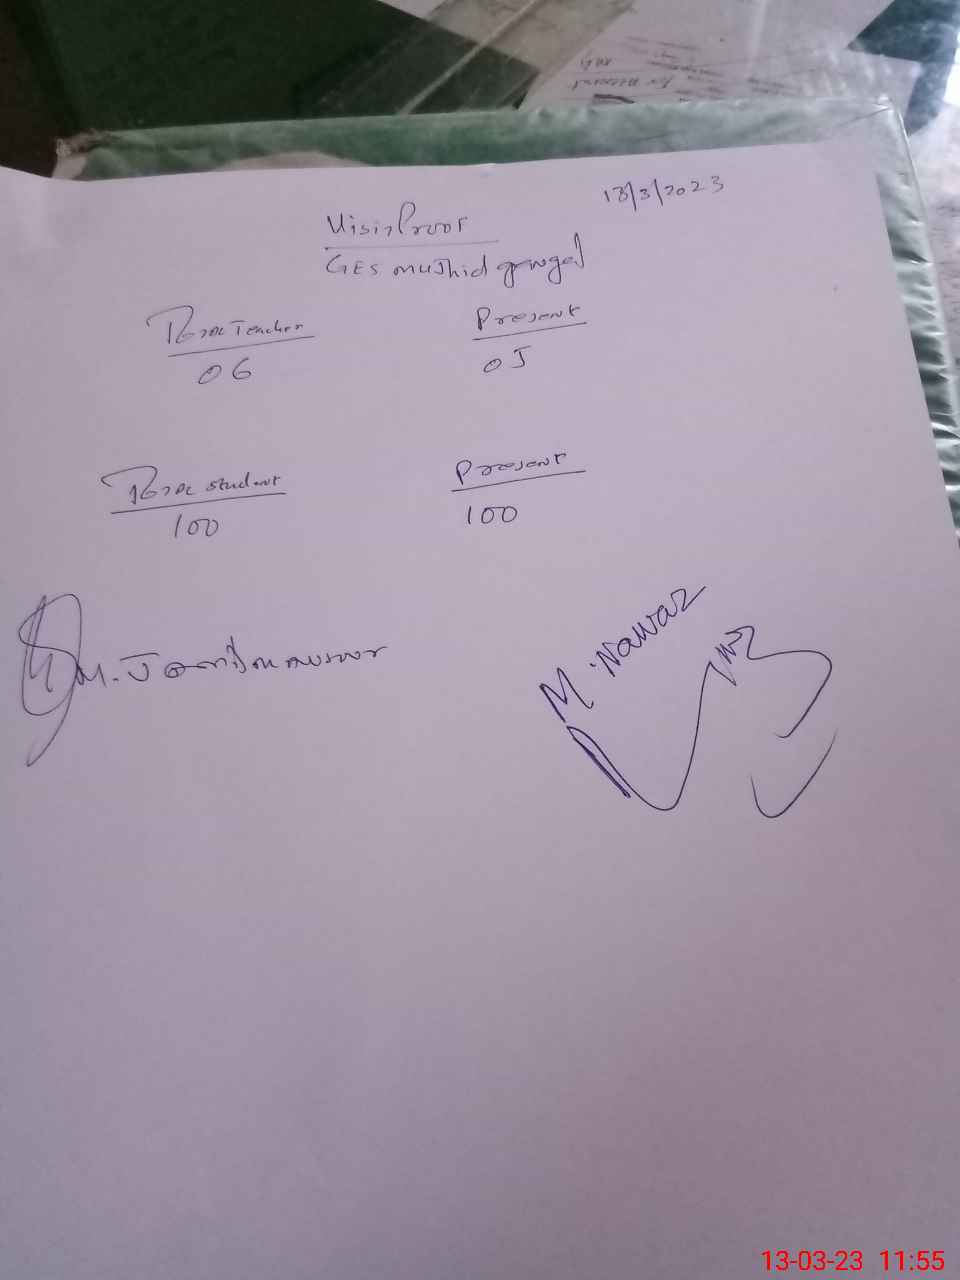 13/3/2023
Visit Proof
GES murshid
Total Teacher
06
Present
05
Total student
100
Present
100
M.
M. Nawaz
13-03-23 11:55